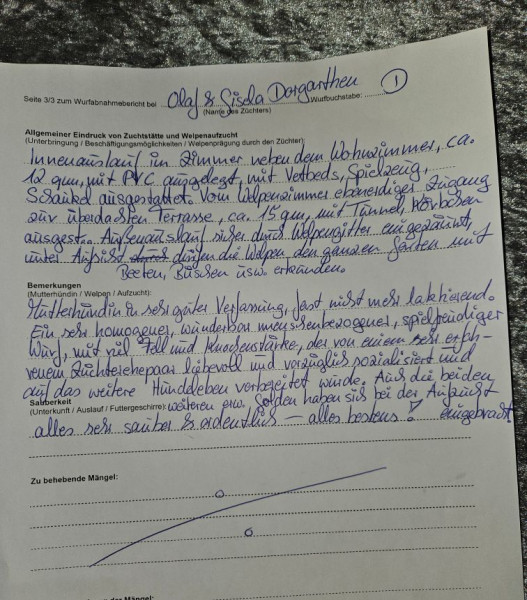 Seite 3/3 zum Wurfabnahmebericht bei Olaf & Gisela Dorgarthen Wurfbuchstabe: ① 
(Name des Züchters)
Allgemeiner Eindruck von Zuchtstätte und Welpenaufzucht
(Unterbringung / Beschäftigungsmöglichkeiten / Welpenprägung durch den Züchter):
Innenauslauf im Zimmer neben dem Wohnzimmer, ca.
12 qm, mit PVC ausgelegt, mit Vetbeds, Spielzeug,
Schaukel ausgestattet. Vom Welpenzimmer ebenerdiger Zugang
zur überdachten Terrasse, ca. 15 qm, mit Tunnel, Körbchen
ausgest. Außenauslauf sicher durch Welpengitter eingezäunt,
unter Aufsicht dürfen die Welpen den ganzen Garten mit
Beeten, Büschen usw. erkunden.
Bemerkungen
(Mutterhündin / Welpen / Aufzucht):
Mutterhündin in sehr guter Verfassung, fast nicht mehr laktierend.
Ein sehr homogener, wunderbar menschenbezogener, spielfreudiger
Wurf, mit viel Fell und Knochenstärke, der von einem sehr erfah-
renem Züchterehepaar liebevoll und vorzüglich sozialisiert und
auf das weitere Hundeleben vorbereitet wurde. Auch die beiden
Sauberkeit
(Unterkunft / Auslauf / Futtergeschirre): weiteren erw. Golden haben sich bei der Aufzucht
alles sehr sauber & ordentlich – alles bestens! eingebracht
Zu behebende Mängel:
der Mängel: